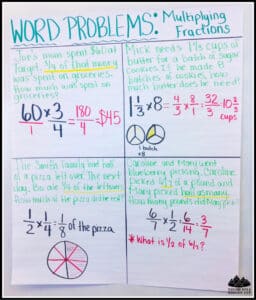 WORD PROBLEMS: Multiplying
Fractions
Joe's mom spent $60 at
Target. 3/4 of that money
was spent on groceries.
How much was spent
on groceries?
60 × 3 = 180 = $45
1 4 4
Mick needs 1 1/3 cups of
butter for a batch of sugar
cookies. If he made 8
batches of cookies, how
much butter does he need?
1 1/3 × 8 = 4/3 × 8/1 = 32/3 = 10 2/3
cups
1 batch
×8
The Smith family had half
of a pizza left over. The next
day, Ben ate 1/4 of the leftovers.
How much of the pizza did he eat?
1/2 × 1/4 = 1/8 of the pizza
Caroline and Mary went
blueberry picking. Caroline
picked 6/7 of a pound and
Mary picked half as many.
How many pounds did Mary pick?
6/7 × 1/2 = 6/14 = 3/7
* What is 1/2 of 6/7?